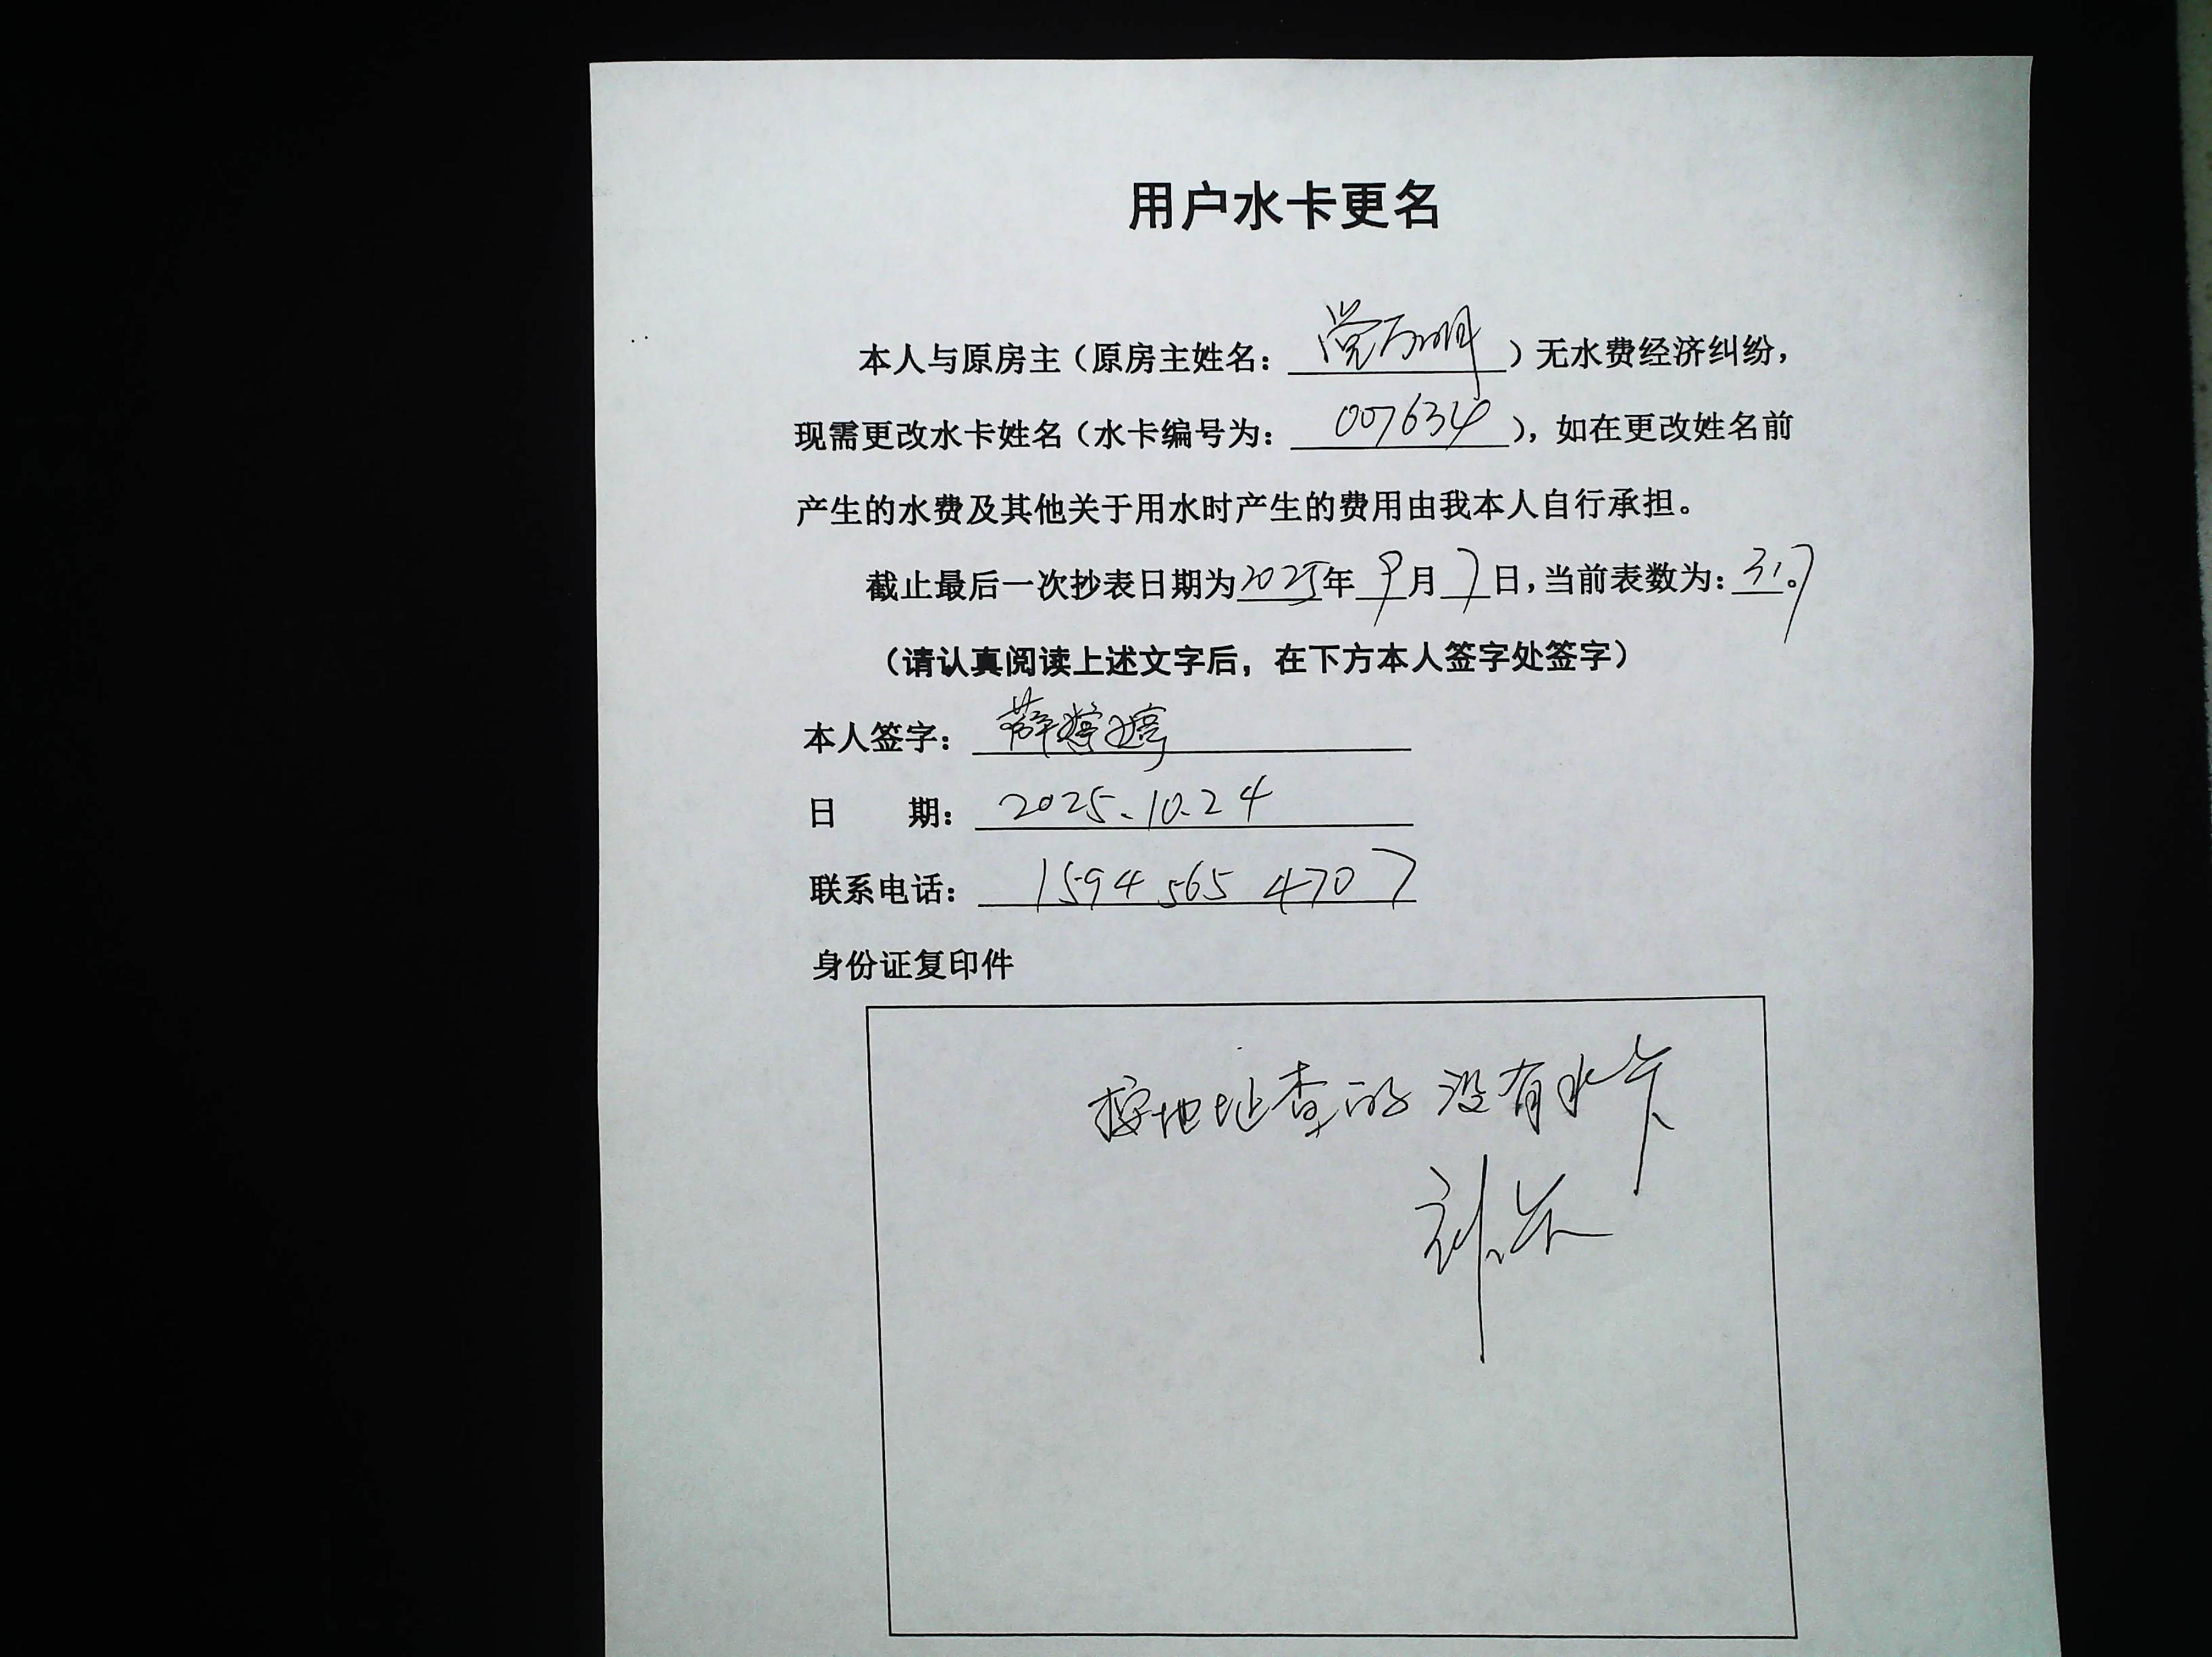 用户水卡更名
本人与原房主（原房主姓名：党万明）无水费经济纠纷，
现需更改水卡姓名（水卡编号为：007634），如在更改姓名前
产生的水费及其他关于用水时产生的费用由我本人自行承担。
截止最后一次抄表日期为2025年9月7日，当前表数为：317。
（请认真阅读上述文字后，在下方本人签字处签字）
本人签字：薛
日 期：2025.10.24
联系电话：1594 565 4707
身份证复印件
按地址查的 没有水卡